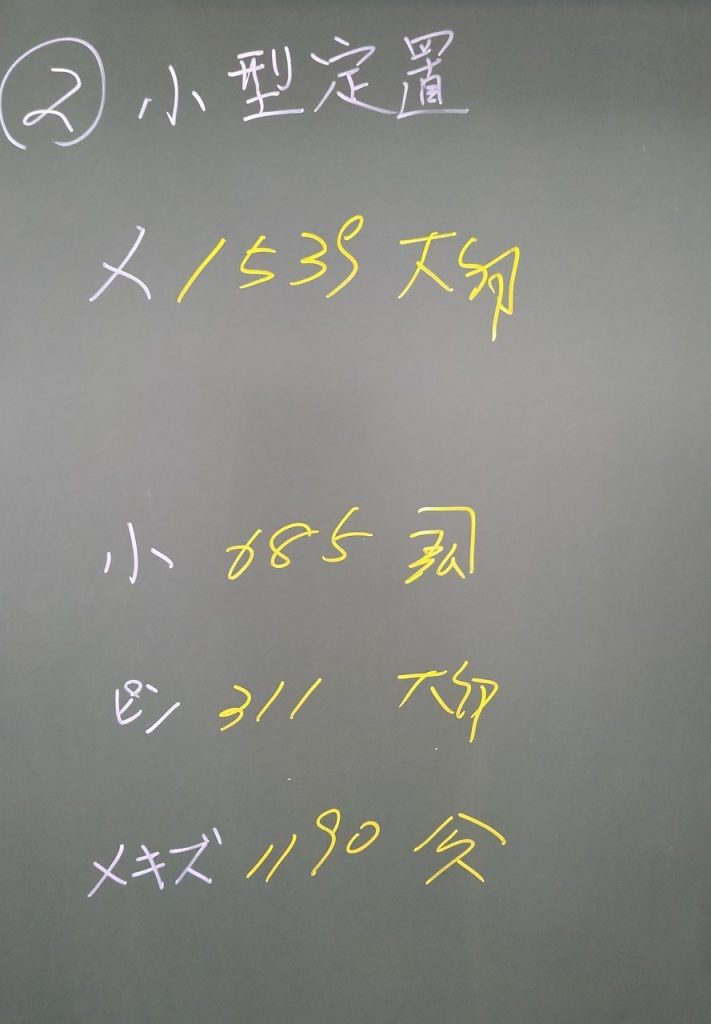 ② 小型定置
メ 1539 大卯
小 685
ピン 311 大卯
メキズ 1190